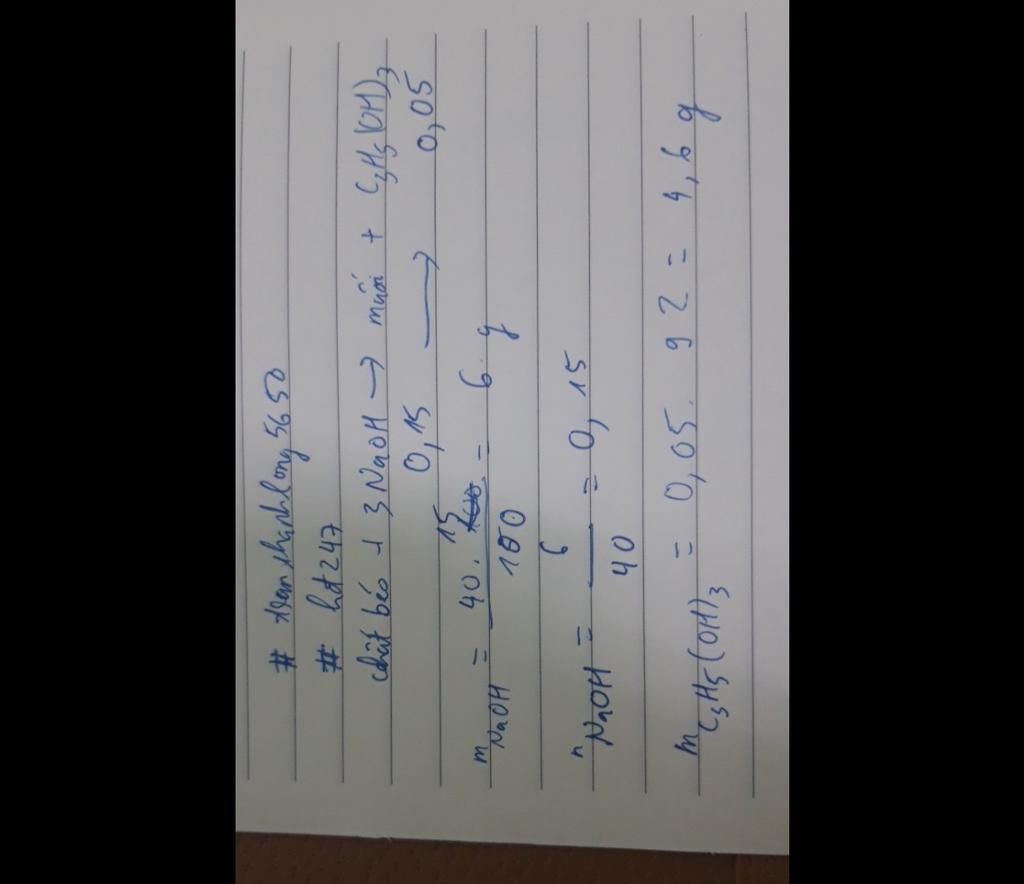 # xuanthanhlong5650
# hđ247
chất béo + 3NaOH → muối + C₃H₅(OH)₃
0,15 → 0,05
m NaOH = 40 . 15 / 100 = 6 g
n NaOH = 6 / 40 = 0,15
m C₃H₅(OH)₃ = 0,05 . 92 = 4,6 g